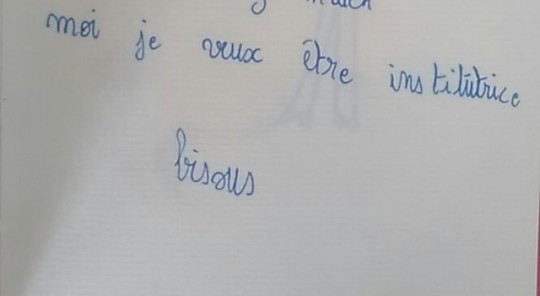 moi je veux être institutrice
bisous